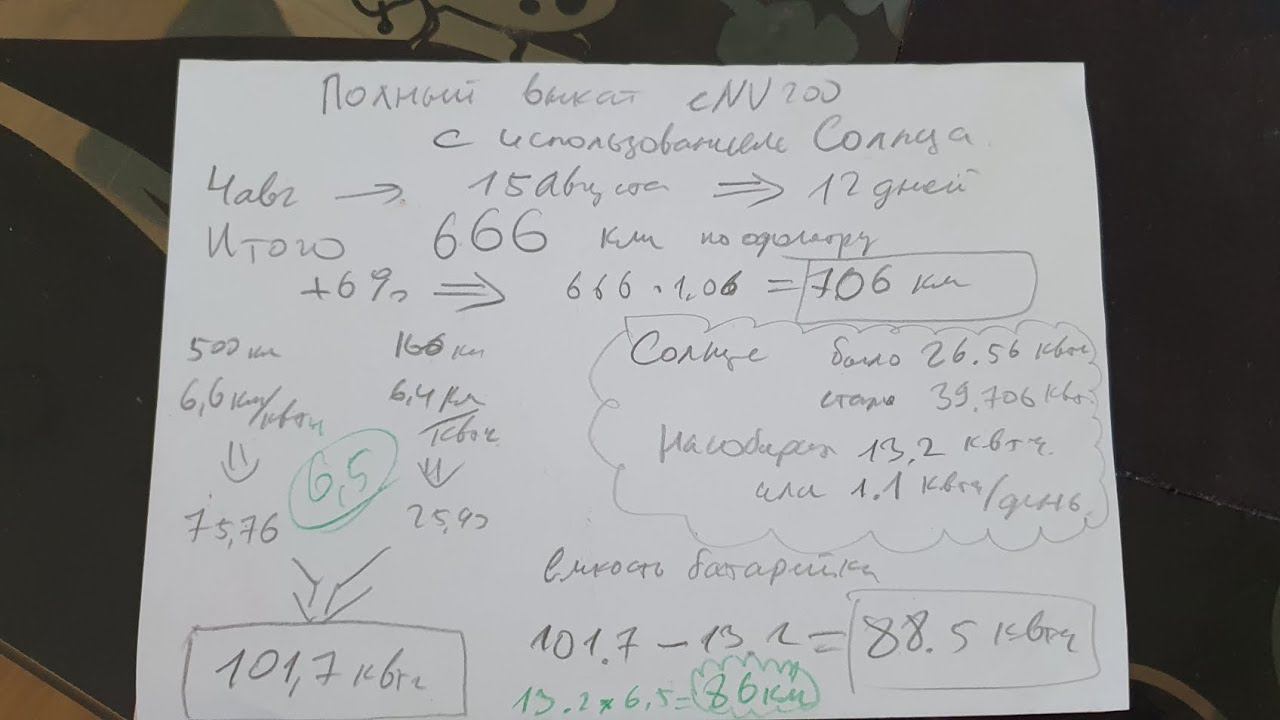 Полный выкат eNV200
с использованием Солнца
4 авг → 15 Августа ⇒ 12 дней
Итого 666 км по одометру
+6% ⇒ 666 · 1,06 = 706 км
500 км 166 км
6,6 км/квтч 6,4 км/квтч
6,5
75,76 25,93
101,7 квтч
Солнце было 26.56 квтч
стало 39.706 квтч
Насобирал 13,2 квтч
или 1.1 квтч/день
емкость батарейки
101.7 – 13.2 = 88.5 квтч
13.2 × 6,5 = 86 км